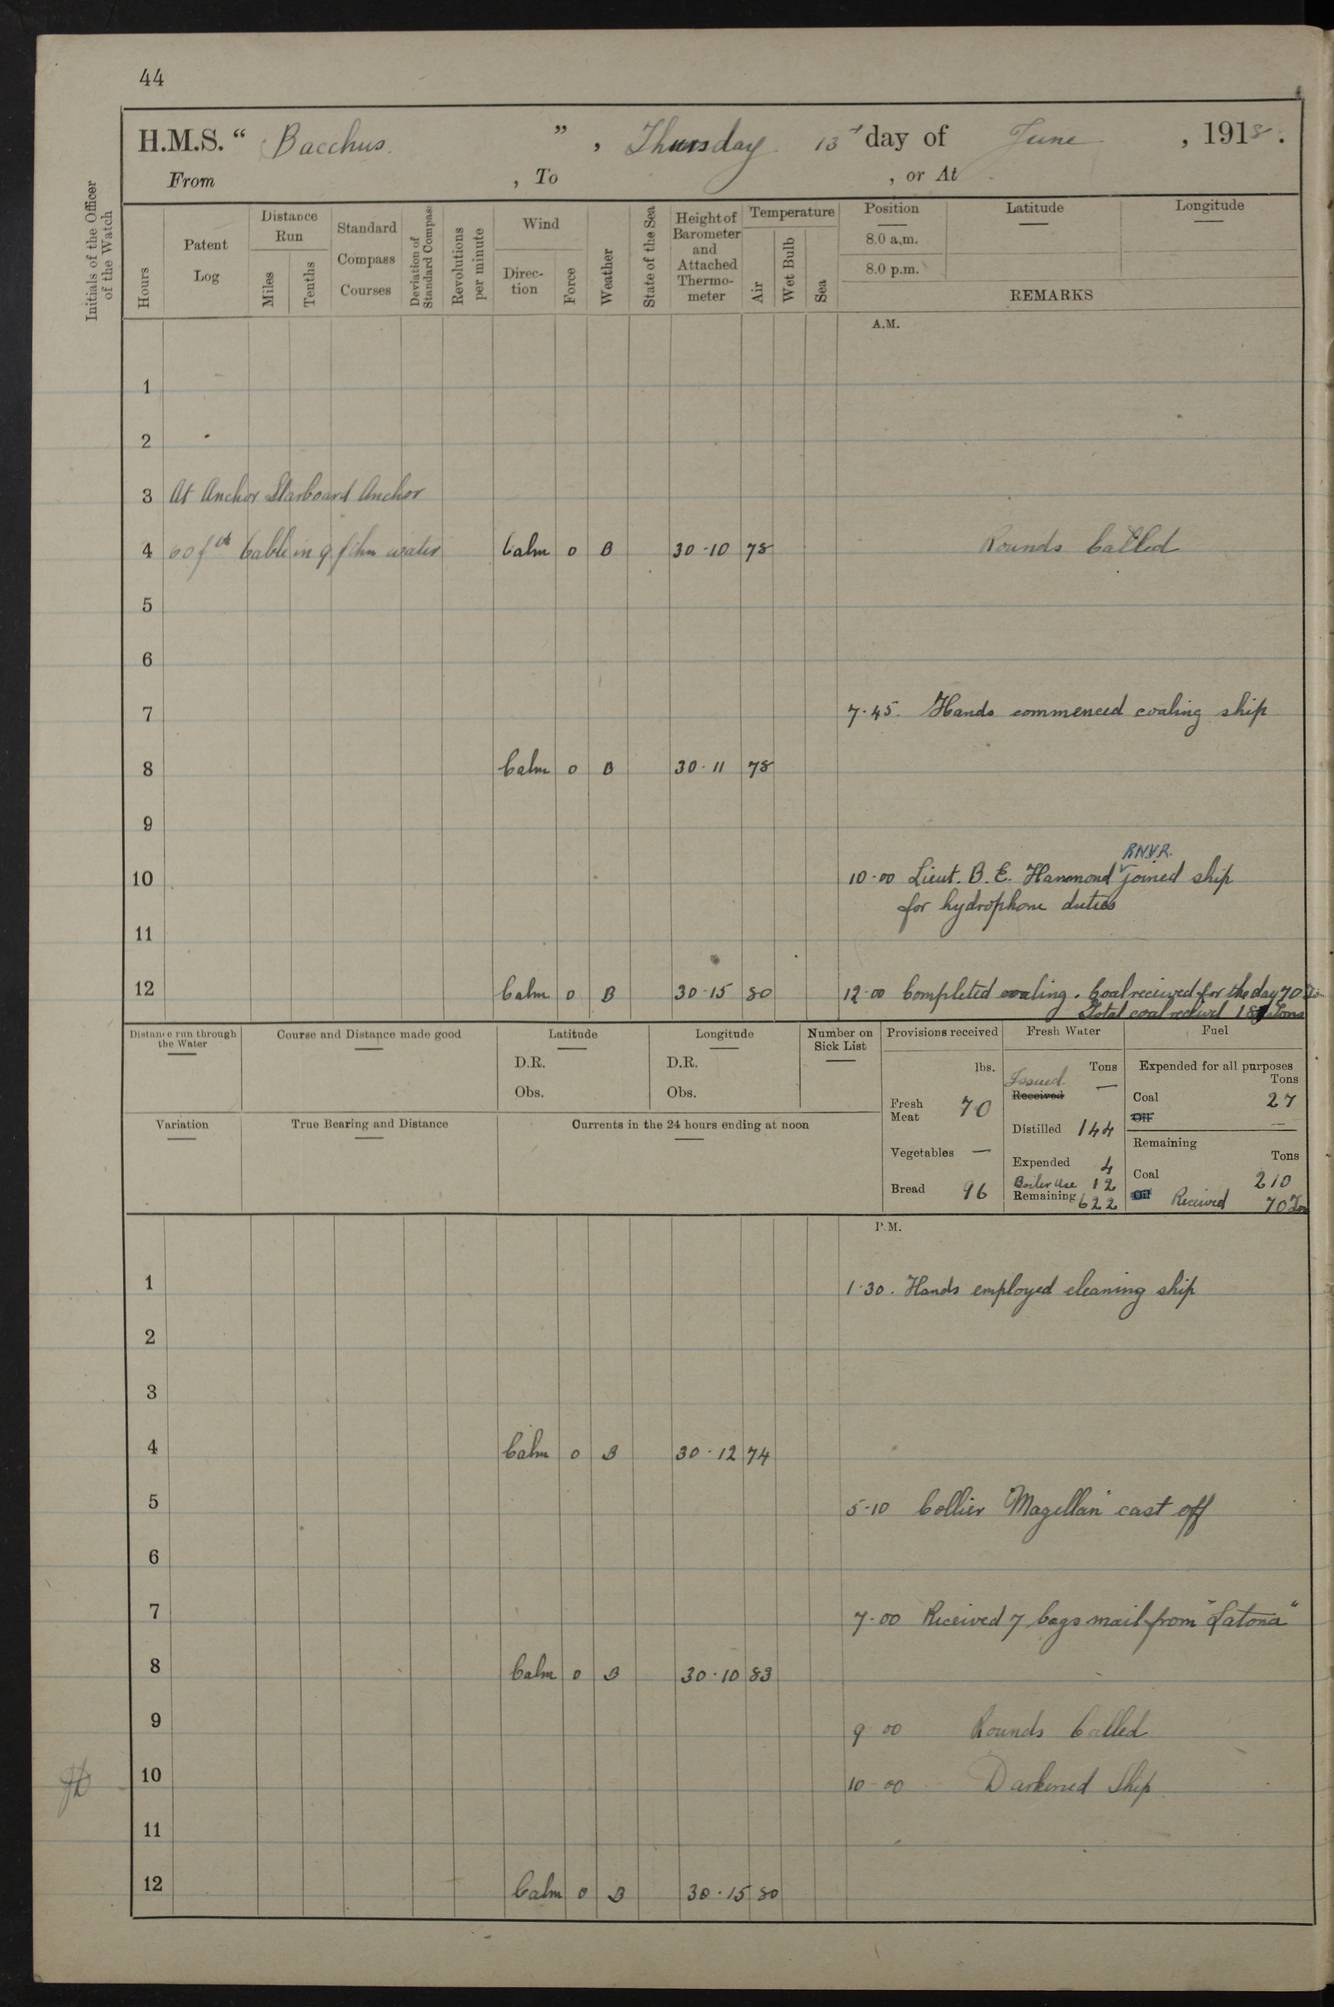 44
H.M.S. “ Bacchus. ” , Thursday 13th day of June , 1918.
From , To , or At
Initials of the Officer of the Watch
Hours
Patent Log
Distance Run
Miles
Tenths
Standard Compass Courses
Deviation of Standard Compass
Revolutions per minute
Wind
Direction
Force
Weather
State of the Sea
Height of Barometer and Attached Thermometer
Temperature
Air
Wet Bulb
Sea
Position Latitude Longitude
8.0 a.m.
8.0 p.m.
REMARKS
A.M.
1
2
3 At Anchor Starboard Anchor
4 60 fth Cable in 9 fthm water Calm 0 B 30·10 78 Rounds Called
5
6
7 7·45. Hands commenced coaling ship
8 Calm 0 B 30·11 78
9
R.N.V.R.
10 10·00 Lieut. B. E. Hammond joined ship
for hydrophone duties
11
12 Calm 0 B 30·15 80 12·00 Completed coaling. Coal received for the day 70
Total coal received Tons
Distance run through the Water
Course and Distance made good
Latitude
D.R.
Obs.
Longitude
D.R.
Obs.
Number on Sick List
Variation
True Bearing and Distance
Currents in the 24 hours ending at noon
Provisions received
lbs.
Fresh Meat 70
Vegetables —
Bread 96
Fresh Water
Tons
Issued —
Received
Distilled 144
Expended 4
Boiler Use 12
Remaining 622
Fuel
Expended for all purposes
Tons
Coal 27
Oil —
Remaining
Tons
Coal 210
Oil Received 70 Tons
P.M.
1 1·30. Hands employed cleaning ship
2
3
4 Calm 0 B 30·12 74
5 5·10 Collier "Magellan" cast off
6
7 7·00 Received 7 bags mail from "Latona"
8 Calm 0 B 30·10 83
9 9 00 Rounds Called
10 10-00 Darkened Ship
11
12 Calm 0 B 30·15 80